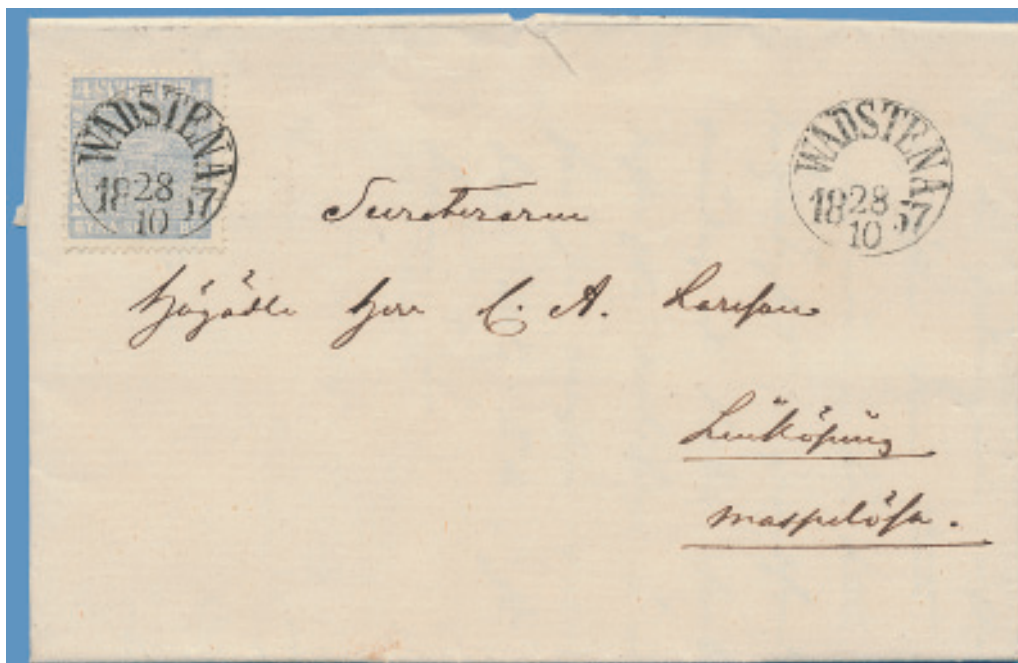 4 SVERIGE 4
WADSTENA
28
18 57
10
WADSTENA
28
18 57
10
Secreteraren
Högädle Herr C. A. Larsson
Linköping
Maspelösa.